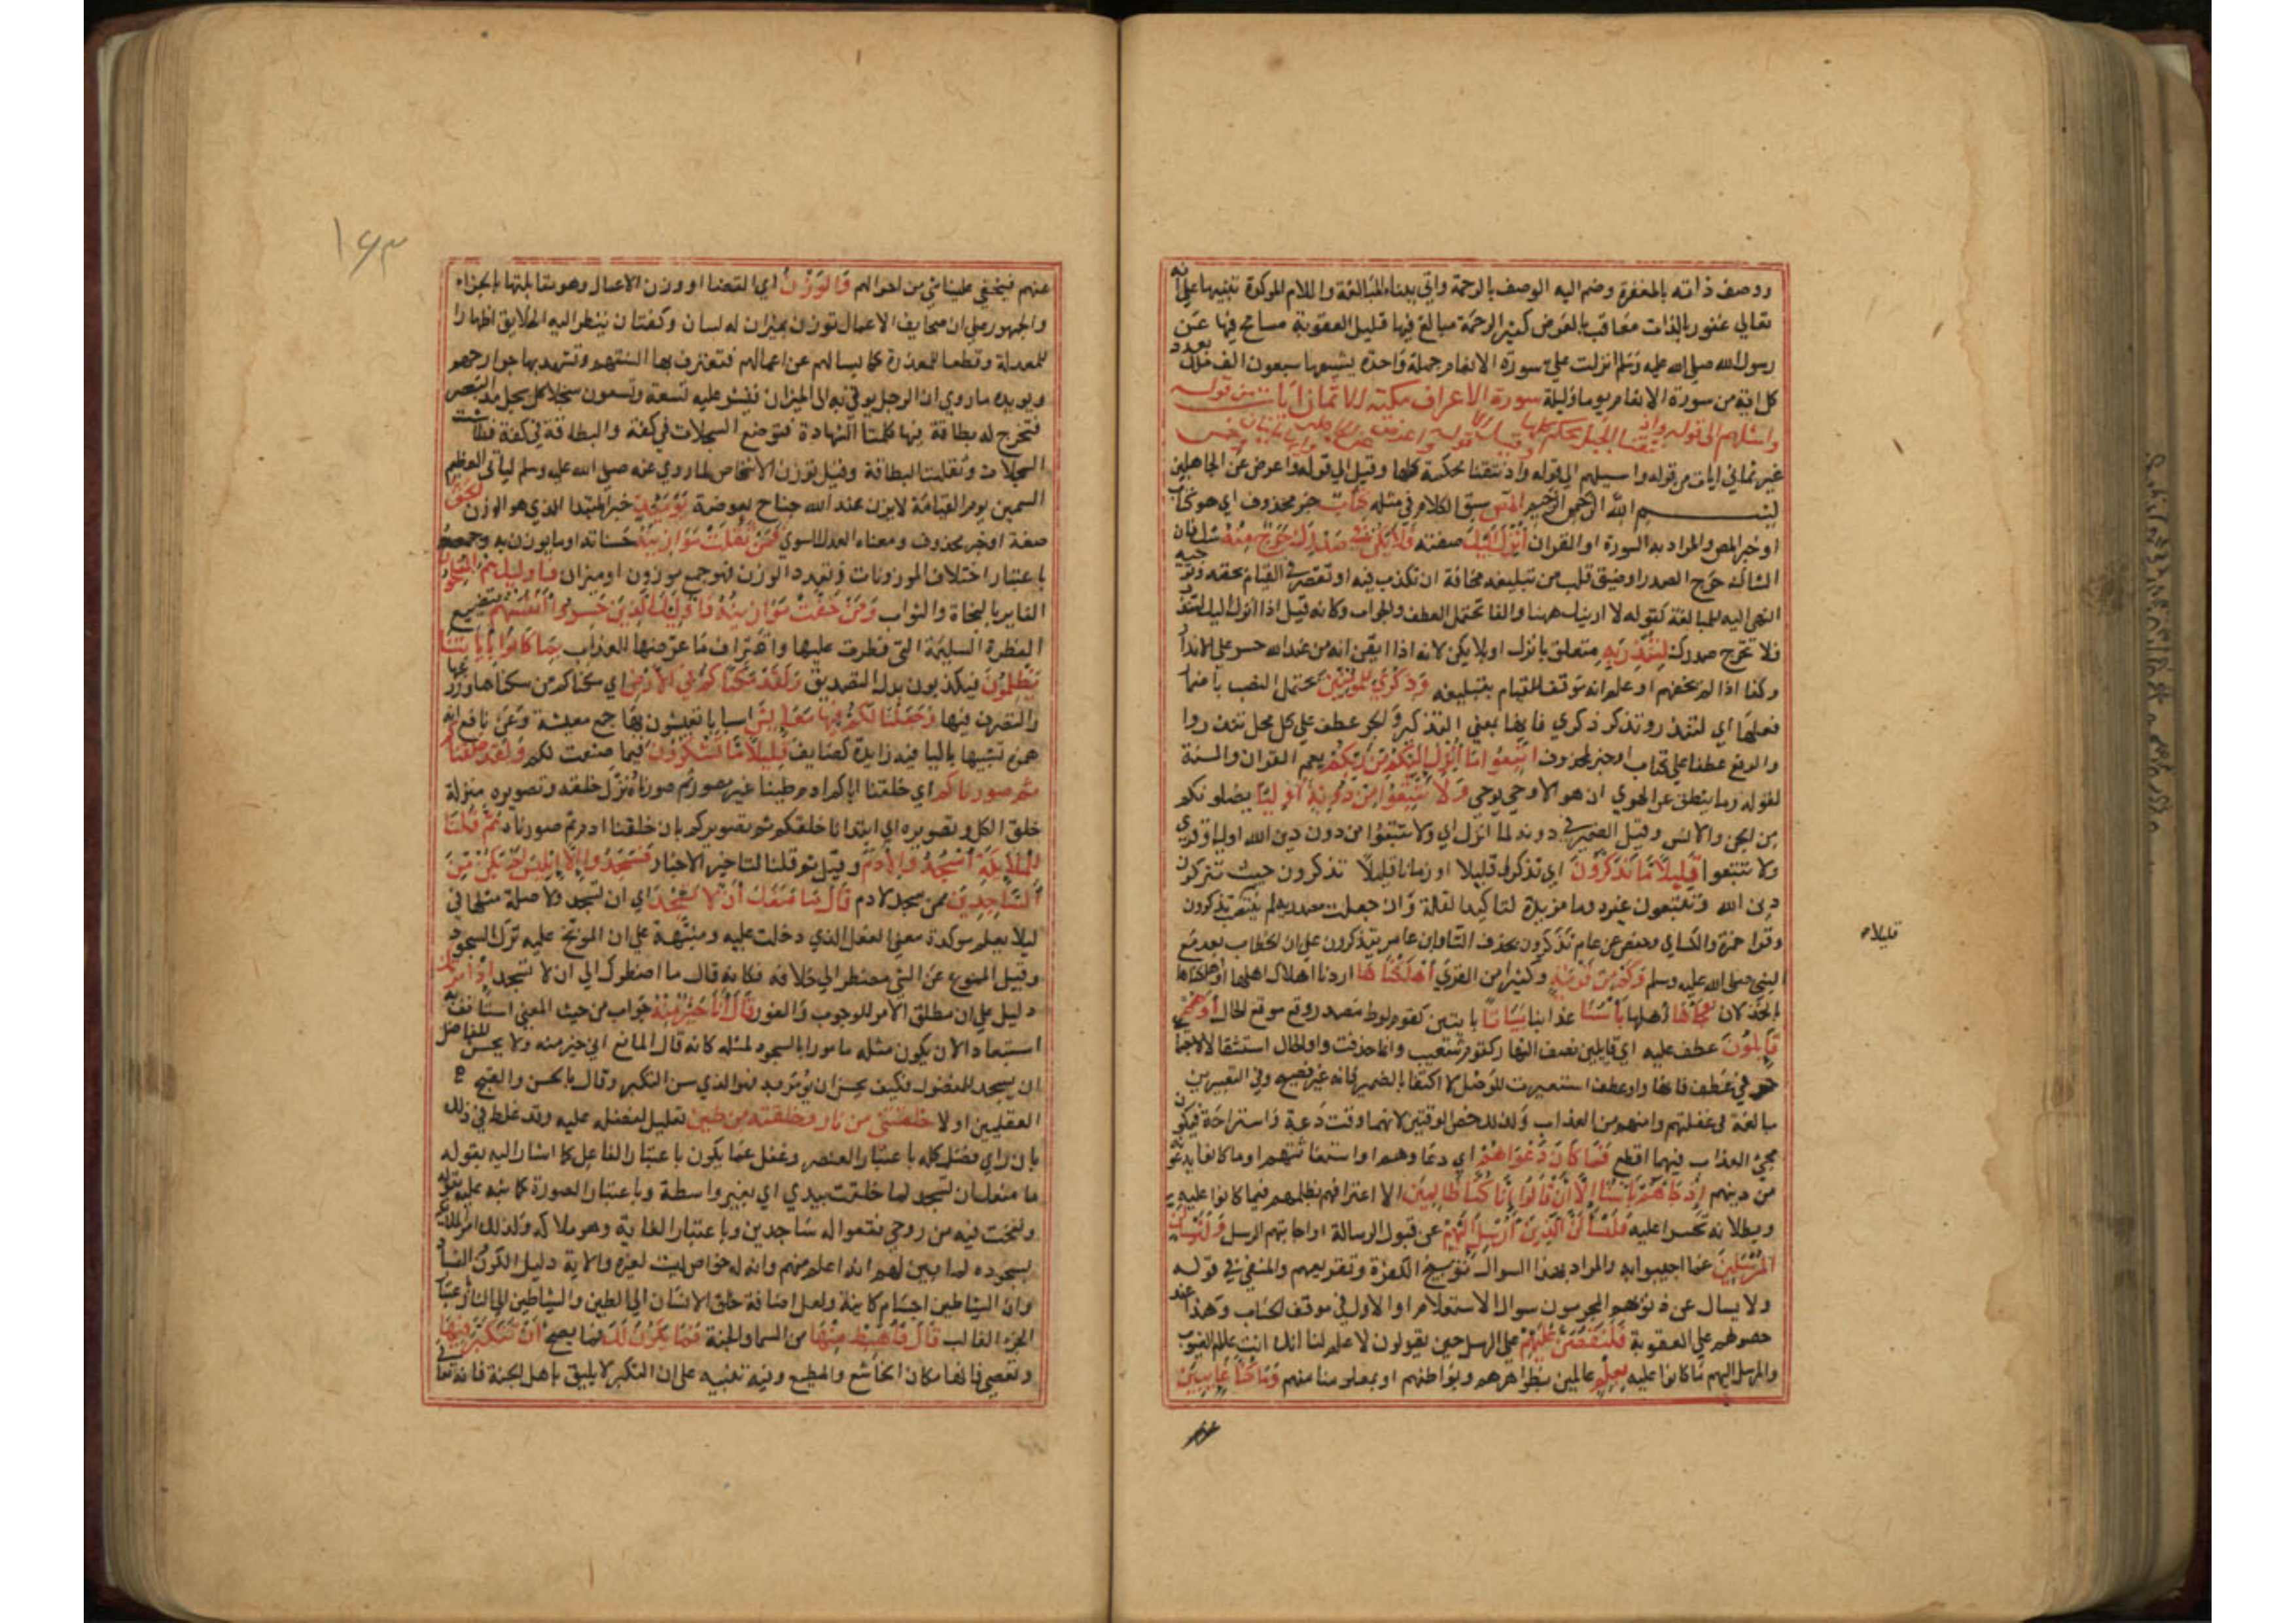 ووصف ذاته بالمغفرة وضم اليه الوصف بالرحمة واتي ببناء المبالغة واللام الموكدة تنبيها علي انه
تعالي غفور بالذات معاقب بالعرض كثير الرحمة مبالغ فيها قليل العقوبة مسامح فيها عن
رسول الله صلي الله عليه وسلم انزلت علي سورة الانعام جملة واحدة يشيعها سبعون الف ملك
كل اية من سورة الانعام يوما وليلة سورة الاعراف مكية الا ثماني ايات من قوله
واسئلهم الي قوله واذ نتقنا الجبل محكم كلها وقيل الا قوله واعرض عن الجاهلين
غير ثماني ايات من قوله واسيلهم الي قوله واذ نتقنا محكمة كلها وقيل الي قوله واعرض عن الجاهلين
بسم الله الرحمن الرحيم المص سبق الكلام في مثله كتاب خبر محذوف اي هو كتاب
او خبر المص والمراد به السورة او القران انزل اليك صفته فلا يكن في صدرك حرج منه شك فان
الشاك حرج الصدر او ضيق قلب من تبليغه مخافة ان تكذب فيه او تقصر في القيام بحقه وتوجيه
النهي اليه للمبالغة كقوله لا ارينك ههنا والفا تحتمل العطف والجواب وكانه قيل اذا انزل اليك لتنذر
فلا تحرج صدرك لتنذر به متعلق بانزل او بلا يكن لانه اذا ايقن انه من عند الله جسر علي الانذار
وكذا اذا لم يخفهم او علم انه موفق للقيام بتبليغه وذكري للمؤمنين يحتمل النصب باضمار
فعلها اي لتنذر وتذكر ذكري فانها بمعني التذكير والجر عطف علي محل تنذر
والرفع عطفا علي كتاب او خبر لمحذوف اتبعوا ما انزل اليكم من ربكم يعم القران والسنة
لقوله وما ينطق عن الهوي ان هو الا وحي يوحي ولا تتبعوا من دونه اوليا يضلونكم
من الجن والانس وقيل الضمير في دونه لما انزل اي ولا تتبعوا من دون دين الله اوليا وقري
ولا تبتغوا قليلا ما تذكرون اي تذكرا قليلا او زمانا قليلا تذكرون حيث تتركون
دين الله وتتبعون غيره وما مزيدة لتاكيد القلة وان جعلت مصدرية لم ينتصب بتذكرون
قليلا
وقرا حمزة والكساي وحفص عن عاصم تذكرون بحذف التا وابن عامر يتذكرون علي ان الخطاب بعد مع
النبي صلي الله عليه وسلم وكم من قرية وكثيرا من القري اهلكناها اردنا اهلاك اهلها او اهلكناها
بالخذلان فجاها اهلها باسنا عذابنا بياتا بايتين كقوم لوط مصدر وقع موقع الحال او هم
قايلون عطف عليه اي قايلين نصف النهار كقوم شعيب وانما حذفت واو الحال استثقالا لاجتماع
حرفي عطف فانها واو عطف استعيرت للوصل لا اكتفا بالضمير فانه غير فصيح وفي التعبيرين
مبالغة في غفلتهم وامنهم من العذاب ولذلك خص الوقتين لانهما وقت دعة واستراحة فيكون
مجي العذاب فيهما افظع فما كان دعواهم اي دعاوهم او استغاثتهم او ما كانوا يدعونه
من دينهم اذ جاهم باسنا الا ان قالوا انا كنا ظالمين الا اعترافهم بظلمهم فيما كانوا عليه
وببطلانه تحسرا عليه فلنسالن الذين ارسل اليهم عن قبول الرسالة او اجابتهم الرسل ولنسالن
المرسلين عما اجيبوا به والمراد بهذا السوال توبيخ الكفرة وتقريعهم والمنفي في قوله
ولا يسال عن ذنوبهم المجرمون سوال الاستعلام او الاول في موقف الحساب وهذا عند
حصولهم علي العقوبة فلنقصن عليهم علي الرسل حين يقولون لا علم لنا انك انت علام الغيوب
والمرسل اليهم ما كانوا عليه بعلم عالمين بظواهرهم وبواطنهم او بمعلومنا منهم وما كنا غايبين
١٤٣
عنهم فيخفي علينا شي من احوالهم والوزن اي القضا او وزن الاعمال وهو مقابلتها بالجزاء
والجمهور علي ان صحايف الاعمال توزن بميزان له لسان وكفتان ينظر اليه الخلايق اظهارا
للمعدلة وقطعا للمعذرة كما يسالهم عن اعمالهم فتعترف بها السنتهم وتشهد بها جوارحهم
ويويده ما روي ان الرجل يوتي به الي الميزان فينشر عليه تسعة وتسعون سجلا كل سجل مد البصر
فتخرج له بطاقة فيها كلمتا الشهادة فتوضع السجلات في كفة والبطاقة في كفة فطاشت
السجلات وثقلت البطاقة وقيل توزن الاشخاص لما روي عنه صلي الله عليه وسلم لياتي العظيم
السمين يوم القيامة لا يزن عند الله جناح بعوضة يوميذ خبر المبتدا الذي هو الوزن الحق
صفة او خبر محذوف ومعناه العدل السوي فمن ثقلت موازينه حسناته او ما يوزن به وجمعه
باعتبار اختلاف الموزونات وتعدد الوزن فهو جمع موزون او ميزان فاوليك هم المفلحون
الفايزون بالنجاة والثواب ومن خفت موازينه فاوليك الذين خسروا انفسهم بتضييع
الفطرة السليمة التي فطرت عليها واقتراف ما عرضها للعذاب بما كانوا باياتنا
يظلمون فيكذبون بدل التصديق ولقد مكناكم في الارض اي مكناكم من سكناها وزرعها
والتصرف فيها وجعلنا لكم فيها معايش اسبابا تعيشون بها جمع معيشة وعن نافع انه
همزه تشبيها بالياء فيه زايدة كصحايف قليلا ما تشكرون فيما صنعت لكم ولقد خلقناكم
ثم صورناكم اي خلقنا اباكم ادم طينا غير مصور ثم صورناه نزل خلقه وتصويره منزلة
خلق الكل وتصويره اي ابتدانا خلقكم ثم تصويركم بان خلقنا ادم ثم صورناه ثم قلنا
للملايكة اسجدوا لادم وقيل ثم قلنا لتاخير الاخبار فسجدوا الا ابليس لم يكن من
الساجدين ممن سجد لادم قال ما منعك ان لا تسجد اي ان تسجد ولا صلة مثلها في
ليلا يعلم موكدة معني الفعل الذي دخلت عليه ومنبهة علي ان الموبخ عليه ترك السجود
وقيل الممنوع عن الشي مضطر الي خلافه فكانه قال ما اضطرك الي ان لا تسجد اذ امرتك
دليل علي ان مطلق الامر للوجوب والفور قال انا خير منه جواب من حيث المعني استانف به
استبعادا لان يكون مثله مامورا بالسجود لمثله كانه قال المانع اني خير منه ولا يحسن للفاضل
ان يسجد للمفضول فكيف يحسن ان يومر به فهو الذي سن التكبر وقال بالحسن والقبح
العقليين اولا خلقتني من نار وخلقته من طين تعليل لفضله عليه وقد غلط في ذلك
بان راي الفضل كله باعتبار العنصر وغفل عما يكون باعتبار الفاعل كما اشار اليه بقوله
ما منعك ان تسجد لما خلقت بيدي اي بغير واسطة وباعتبار الصورة كما نبه عليه بقوله
ونفخت فيه من روحي فقعوا له ساجدين وباعتبار الغاية وهو ملاكه ولذلك امر الملايكة
بسجوده لما بين لهم انه اعلم منهم وانه له خواص ليست لغيره والاية دليل الكون والفساد
وان الشياطين اجسام كاينة ولعل اضافة خلق الانسان الي الطين والشياطين الي النار باعتبار
الجزء الغالب قال فاهبط منها من السما والجنة فما يكون لك فما يصح ان تتكبر فيها
وتعصي فانها مكان الخاشع والمطيع وفيه تنبيه علي ان التكبر لا يليق باهل الجنة فانه تعالي